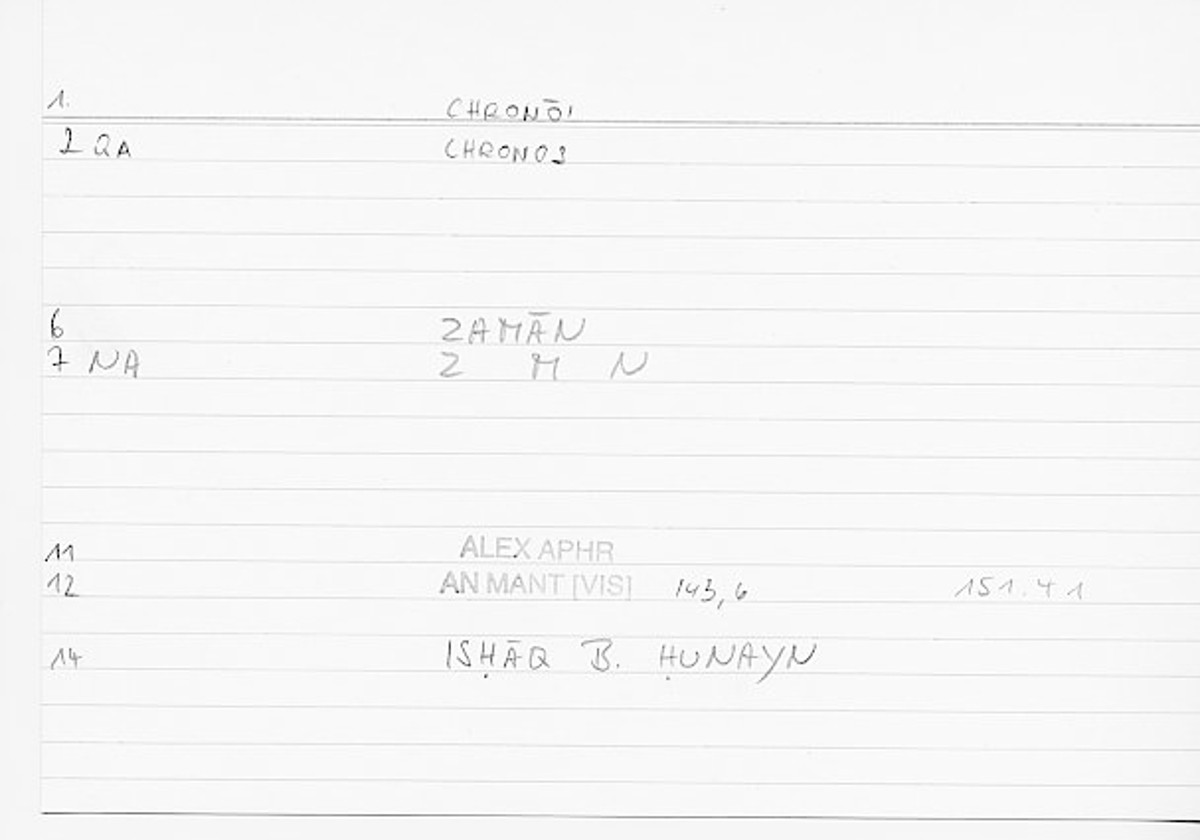 1. CHRONŌI
2 QA CHRONOS
6 ZAMĀN
7 NA Z M N
11 ALEX APHR
12 AN MANT [VIS] 143,6 151.41
14 ISḤĀQ B. ḤUNAYN